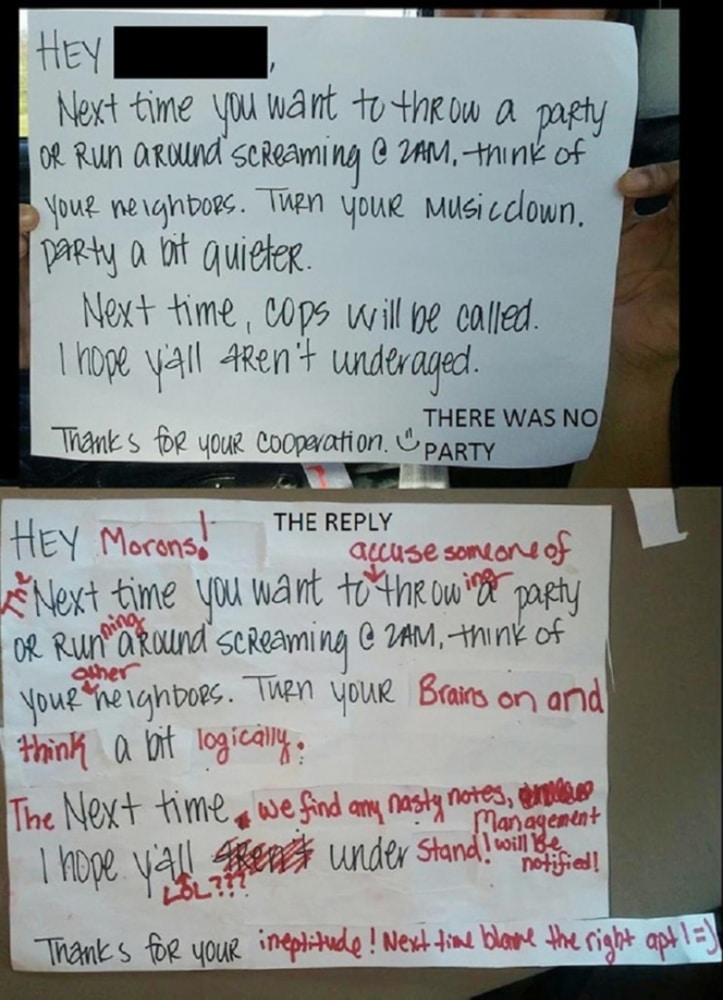 HEY ,
Next time you want to throw a party
or run around screaming @ 2AM, think of
your neighbors. Turn your music down.
party a bit quieter.
Next time, cops will be called.
I hope y'all aren't underaged.
Thanks for your cooperation.
THERE WAS NO
PARTY
THE REPLY
HEY Morons!
accuse someone of
The Next time you want to throwing a party
or running around screaming @ 2AM, think of
your other neighbors. Turn your Brains on and
think a bit logically.
The Next time, we find any nasty notes,
Management
will be
notified!
I hope y'all aren't under stand!
LOL???
Thanks for your ineptitude! Next time blame the right apt! =)